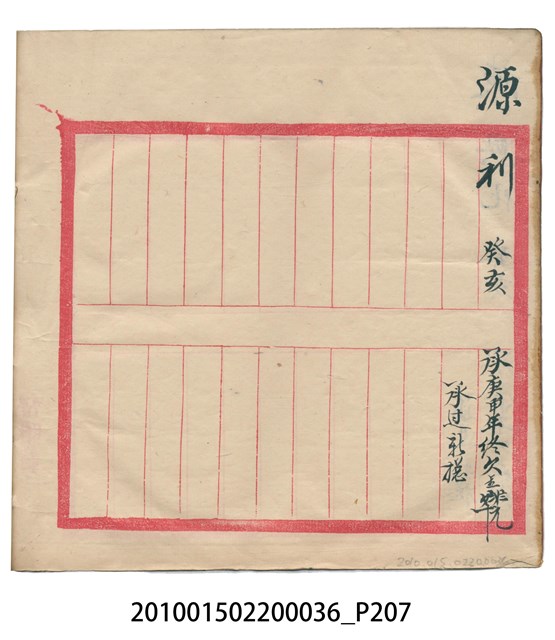 源利 癸亥
承庚申年終欠
承过新
2010.015.0220.0036
201001502200036_P207